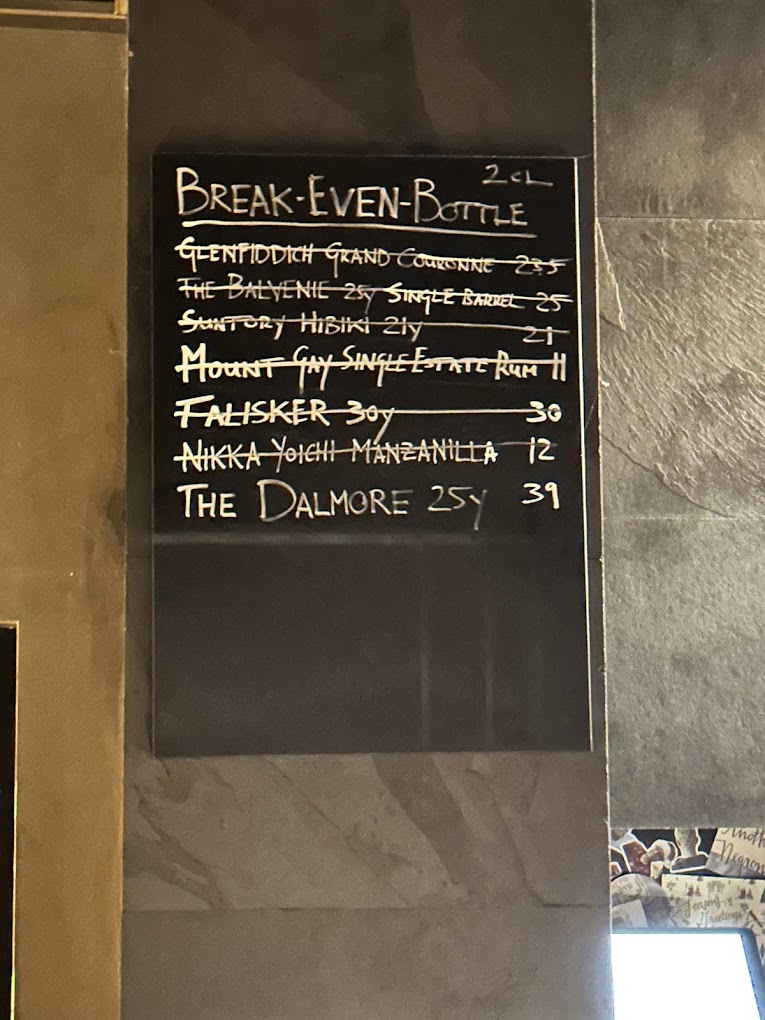 2CL
BREAK-EVEN-BOTTLE
GLENFIDDICH GRAND COURONNE 23,5
THE BALVENIE 25y SINGLE BARREL 25
SUNTORY HIBIKI 21y 21
MOUNT GAY SINGLE ESTATE RUM 11
TALISKER 30y 30
NIKKA YOICHI MANZANILLA 12
THE DALMORE 25y 39
Anoth
Negron
Season's
Greetings